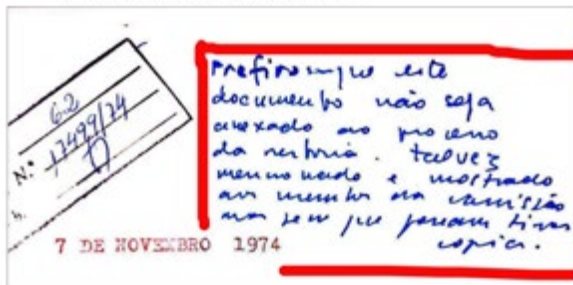 62
N.º 17499/74
Prefiro que este
documento não seja
anexado ao processo
da reitoria. Talvez
mencionado e mostrado
aos membros da comissão
mas sem que possam tirar
copia.
7 DE NOVEMBRO 1974